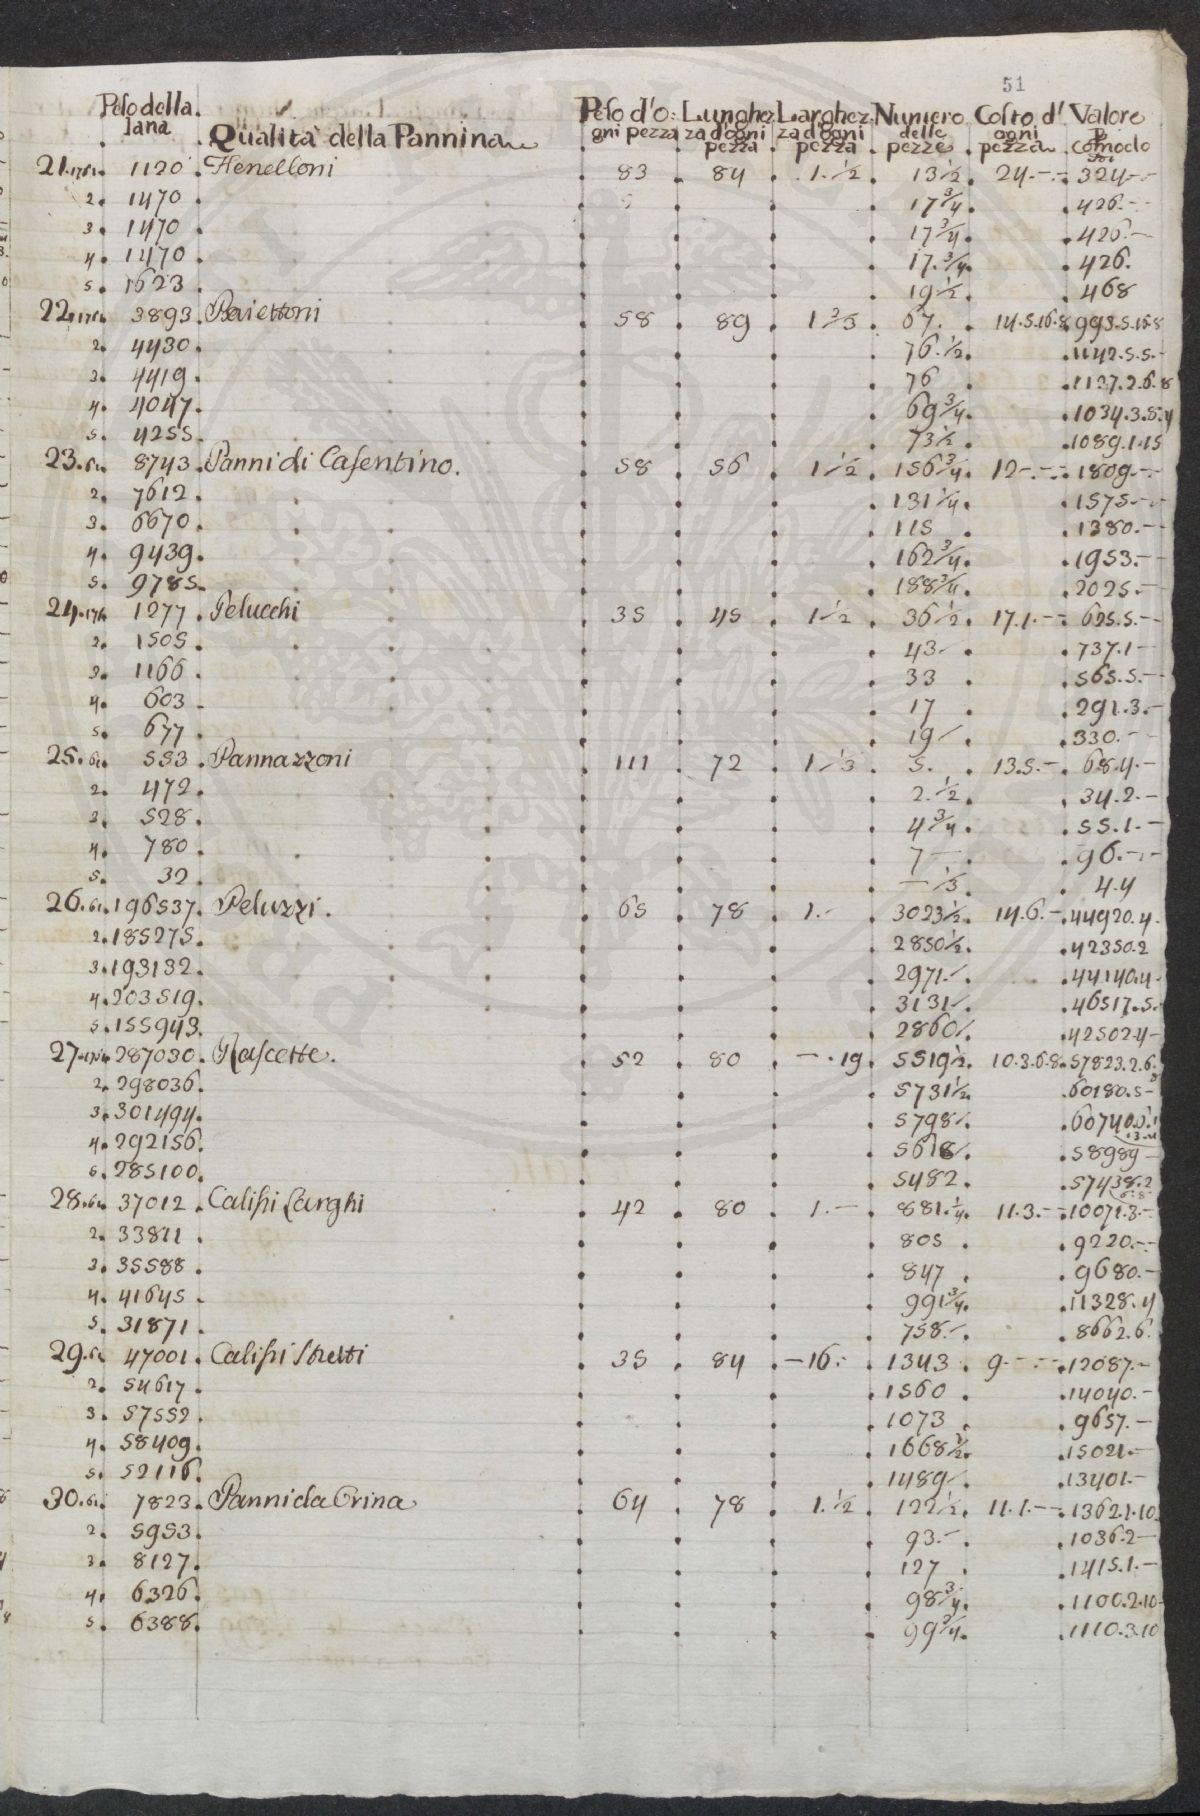 51
Peso della lana. Qualità della Pannina Peso d'ogni pezza Lunghezza d'ogni pezza Larghezza d'ogni pezza Numero delle pezze Costo d'ogni pezza Valore Comodo
21. 1761. 1120 Fenelloni 83 84 1.½ 13½ 24.-- 324--
2. 1470 17¾ 426.--
3. 1470 17¾ 426.-
4. 1470 17.¾ 426.
5. 1623 19½ 468
22. 176 3893 Baiettoni 58 89 1⅔ 67. 14.5.16.8 993.5.16.8
2. 4430 76.½ 1142.5.5.-
3. 4419 76 1137.2.6.8
4. 4047 69¾ 1034.3.8.4
5. 4255 73½ 1089.1.15
23. 61. 8743 Panni di Casentino. 58 56 1½ 156¾ 12-.-- 1809.--
2. 7612 131¼ 1575--
3. 6670 115 1380.--
4. 9439 162¾ 1953.--
5. 9785 188¾ 2025.--
24. 176 1277 Pelucchi 35 45 1½ 36½ 17.1.-- 625.5.--
2. 1505 43.- 737.1-
3. 1166 33 565.5.--
4. 603 17 291.3.-
5. 677 19/ 330.--
25. 61. 553 Pannazzoni 111 72 1/3 5. 13.5.- 68.4.-
2. 472 2.½ 34.2.-
3. 528 4¾ 55.1.-
4. 780 7- 96.--
5. 32 -⅓ 4.4
26. 61. 196537 Peluzzi. 65 78 1.- 3023½ 14.6.- 44920.4.
2. 185275 2850½ 42350.2
3. 193132 2971/ 44140.4-
4. 203519 3131/ 46517.5.-
5. 155943 2860/ 42502.4-
27. 176 287030 Rascette. 52 80 -.19 5519½ 10.3.6.8 57823.2.6.8
2. 298036 5731½ 60180.5-
3. 301494 5798/
4. 292156 5618/ 58989-
5. 285100 5482 57438.2
28. 61. 37012 Calissi Larghi 42 80 1.- 881.¼ 11.3.-- 10071.3.-
2. 33811 805 9220.--
3. 35588 847 9680.-
4. 41645 991¾ 11328.4
5. 31871 758.- 8662.6.
29. 61 47001 Calissi Stretti 35 84 -16.- 1343 9.--- 12087.-
2. 54617 1560 14040.-
3. 57552 1073 9657.-
4. 58409 1668½ 15021.-
5. 52116 1489/ 13401-
30. 61. 7823 Panni da Brina 64 78 1.½ 122½ 11.1.-- 1362.1.10
2. 5953 93.- 1036.2-
3. 8127 127 1415.1.-
4. 6326 98¾ 1100.2.10
5. 6388 99¾ 1110.3.10